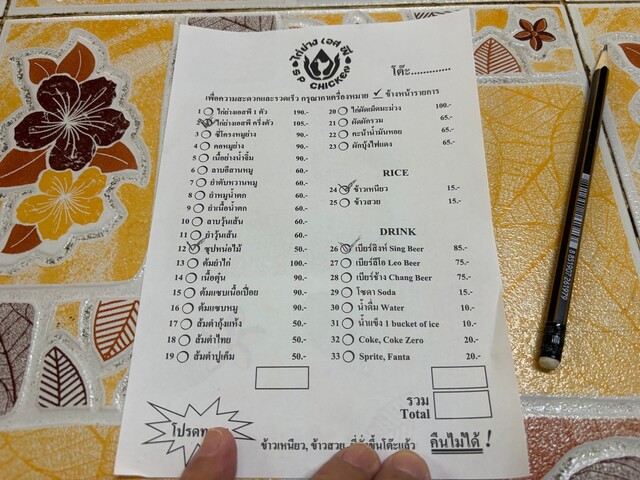 ไก่ย่าง เอส พี
S P CHICKEN
โต๊ะ.............
เพื่อความสะดวกและรวดเร็ว กรุณากาเครื่องหมาย ✓ ข้างหน้ารายการ
1 ไก่ย่างเอสพี 1 ตัว 190.-
2 ไก่ย่างเอสพี ครึ่งตัว 105.-
3 ซี่โครงหมูย่าง 90.-
4 คอหมูย่าง 90.-
5 เนื้อย่างน้ำจิ้ม 90.-
6 ลาบอีสานหมู 60.-
7 ยำตับหวานหมู 60.-
8 ยำหมูน้ำตก 60.-
9 ยำเนื้อน้ำตก 60.-
10 ลาบวุ้นเส้น 60.-
11 ยำวุ้นเส้น 60.-
12 ซุปหน่อไม้ 50.-
13 ต้มยำไก่ 100.-
14 เนื้อตุ๋น 90.-
15 ต้มแซบเนื้อเปื่อย 90.-
16 ต้มแซบหมู 90.-
17 ส้มตำกุ้งแห้ง 50.-
18 ส้มตำไทย 50.-
19 ส้มตำปูเค็ม 50.-
20 ไก่ผัดเม็ดมะม่วง 100.-
21 ผัดผักรวม 65.-
22 คะน้าน้ำมันหอย 65.-
23 ผักบุ้งไฟแดง 65.-
RICE
24 ข้าวเหนียว 15.-
25 ข้าวสวย 15.-
DRINK
26 เบียร์สิงห์ Sing Beer 85.-
27 เบียร์ลีโอ Leo Beer 75.-
28 เบียร์ช้าง Chang Beer 75.-
29 โซดา Soda 15.-
30 น้ำดื่ม Water 10.-
31 น้ำแข็ง 1 bucket of ice 10.-
32 Coke, Coke Zero 20.-
33 Sprite, Fanta 20.-
รวม
Total
โปรดท
ข้าวเหนียว, ข้าวสวย ที่สั่งขึ้นโต๊ะแล้ว คืนไม่ได้ !
8 851907 261979